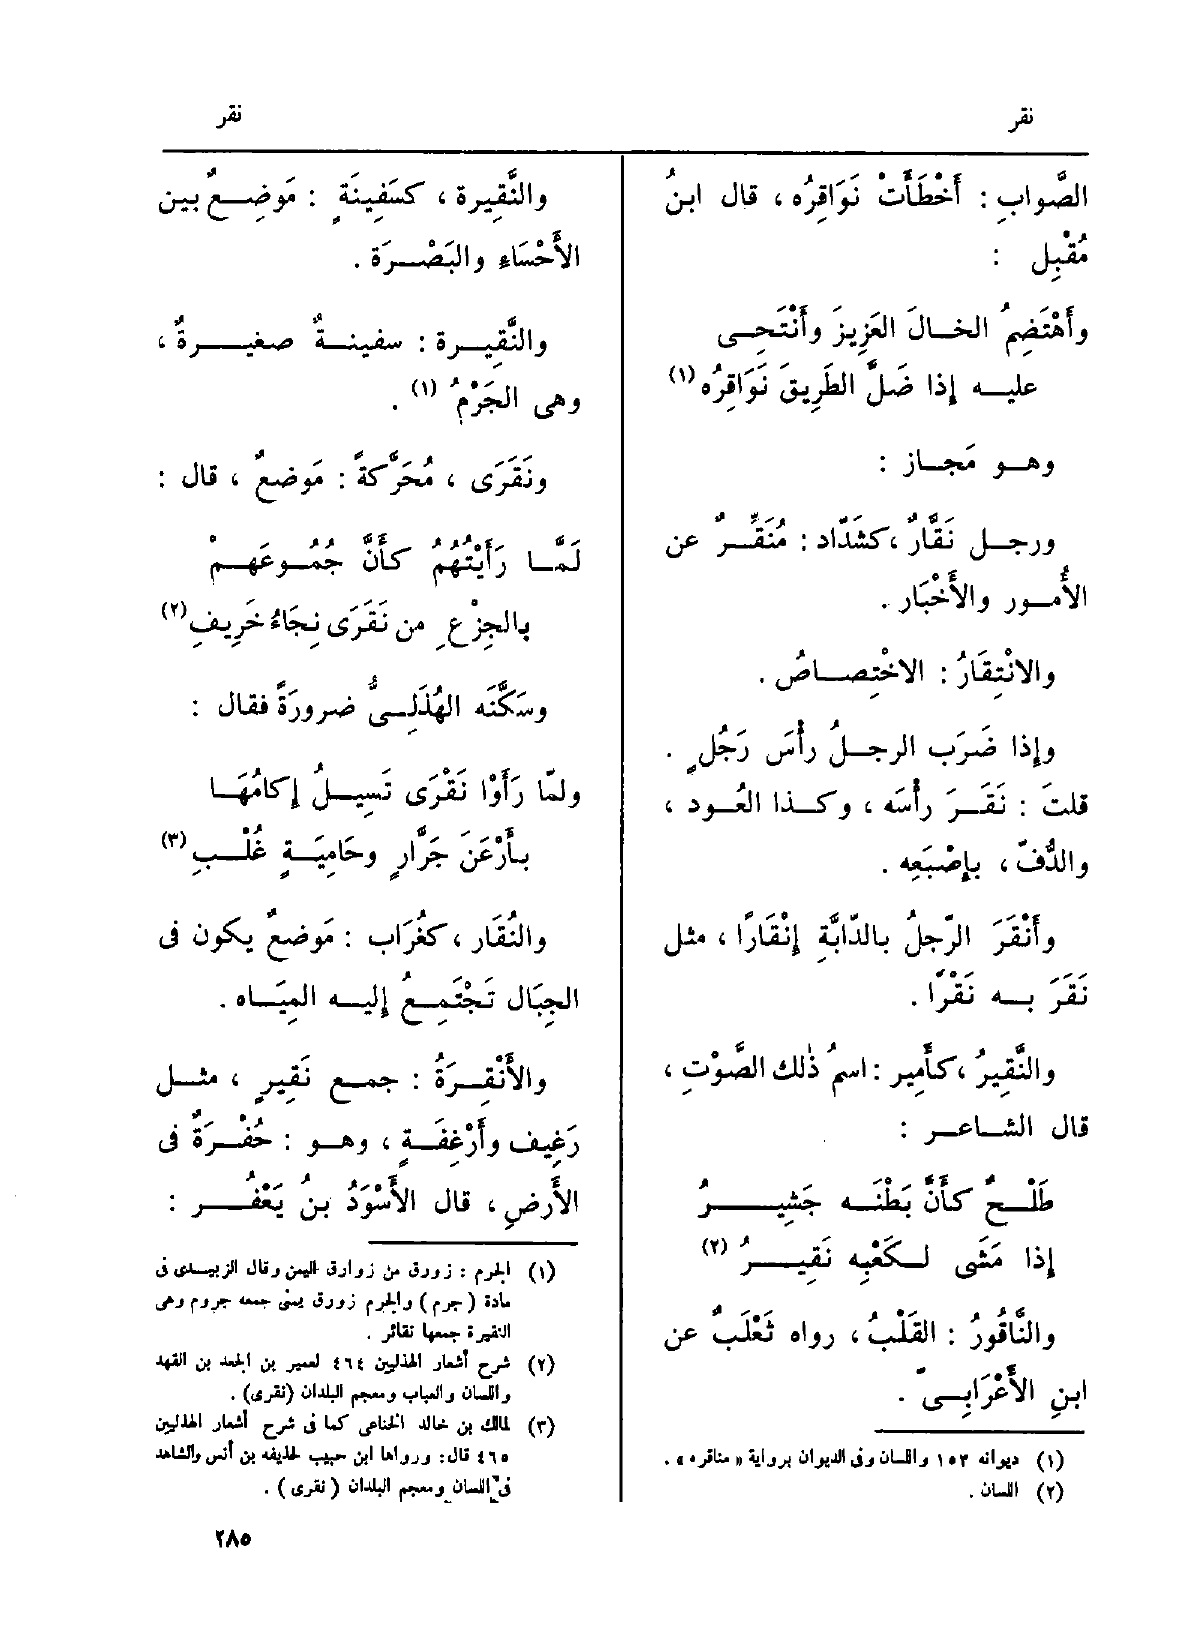 نقر
نقر
الصَّوابِ : أَخْطَأَتْ نَوَاقِرُه ، قال ابنُ
مُقْبِل :
وأَهْتَضِمُ الخالَ العَزِيزَ وأَنْتَحِى
عليه إذا ضَلَّ الطَرِيقَ نَوَاقِرُه (١)
وهو مَجاز :
ورجل نَقَّارٌ ، كشَدّاد : مُنَقِّرٌ عن
الأُمور والأَخْبَار .
والانْتِقَارُ : الاخْتِصاصُ .
وإذا ضَرَب الرجلُ رأسَ رَجُلٍ .
قلتَ : نَقَرَ رأْسَه ، وكذا العُود ،
والدُّفّ ، بإِصْبَعِه .
وأَنْقَرَ الرّجلُ بالدّابَّةِ إِنْقَارًا ، مثل
نَقَرَ به نَقْرًا .
والنَّقِيرُ ، كأَمِير : اسمُ ذٰلك الصَّوْتِ ،
قال الشاعر :
طَلْحٌ كأَنَّ بَطْنَه جَشِيرُ
إذا مَشَى لكَعْبِه نَقِيرُ (٢)
والنَّاقُورُ : القَلْبُ ، رواه ثَعْلَبٌ عن
ابنِ الأَعْرَابِىّ .
(١) ديوانه ١٥٣ واللسان وفى الديوان برواية « مناقره » .
(٢) اللسان .
والنَّقِيرة ، كسَفِينَةٍ : مَوضِعٌ بين
الأَحْسَاءِ والبَصْرَة .
والنَّقِيرة : سفينةٌ صغيرةٌ ،
وهى الجَرْمُ (١) .
ونَقَرَى ، مُحَرَّكةً : مَوضعٌ ، قال :
لَمَّا رَأَيْتُهُمُ كأَنَّ جُمُوعَهمْ
بالجِزْعِ من نَقَرَى نِجَاءُ خَرِيفِ (٢)
وسَكَّنَه الهُذَلِىُّ ضرورَةً فقال :
ولمّا رَأَوْا نَقْرَى تَسِيلُ إكامُهَا
بأَرْعَنَ جَرَّارٍ وحَامِيَةٍ غُلْبِ (٣)
والنُقَار ، كغُرَاب : مَوضعٌ يكون فى
الجِبَال تَجْتَمِعُ إليه المِيَاه .
والأَنْقِرَةُ : جمع نَقِيرٍ ، مثل
رَغِيف وأَرْغِفَةٍ ، وهو : حُفْرَةٌ فى
الأَرضِ ، قال الأَسْوَدُ بنُ يَعْفُر :
(١) الجرم : زورق من زوارق اليمن وقال الزبيدى فى
مادة ( جرم ) والجرم زورق يمنى جمعه جروم وهى
النقيرة جمعها نقائر .
(٢) شرح أشعار الهذليين ٤٦٤ لعمير بن الجعد بن القهد
واللسان والعباب ومعجم البلدان (نقرى) .
(٣) لمالك بن خالد الخناعى كما فى شرح أشعار الهذليين
٤٦٥ قال: ورواها ابن حبيب لحذيفه بن أنس والشاهد
فى اللسان ومعجم البلدان ( نقرى ) .
٢٨٥